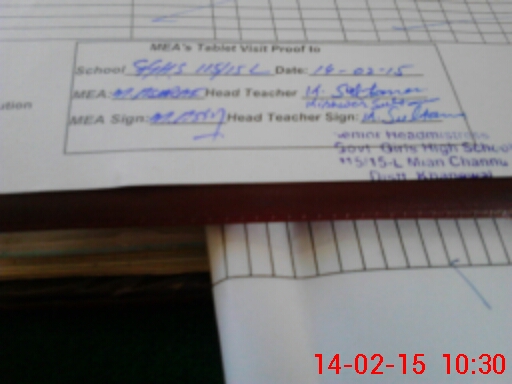 MEA's Tablet Visit Proof to
School GGHS 115/15 L Date: 14-02-15
MEA: Head Teacher K. Sultana
Kishwer Sultana
ution
MEA Sign: Head Teacher Sign: K. Sultana
Senior Headmistress
Govt. Girls High School
115/15-L Mian Channu
Distt. Khanewal
14-02-15 10:30